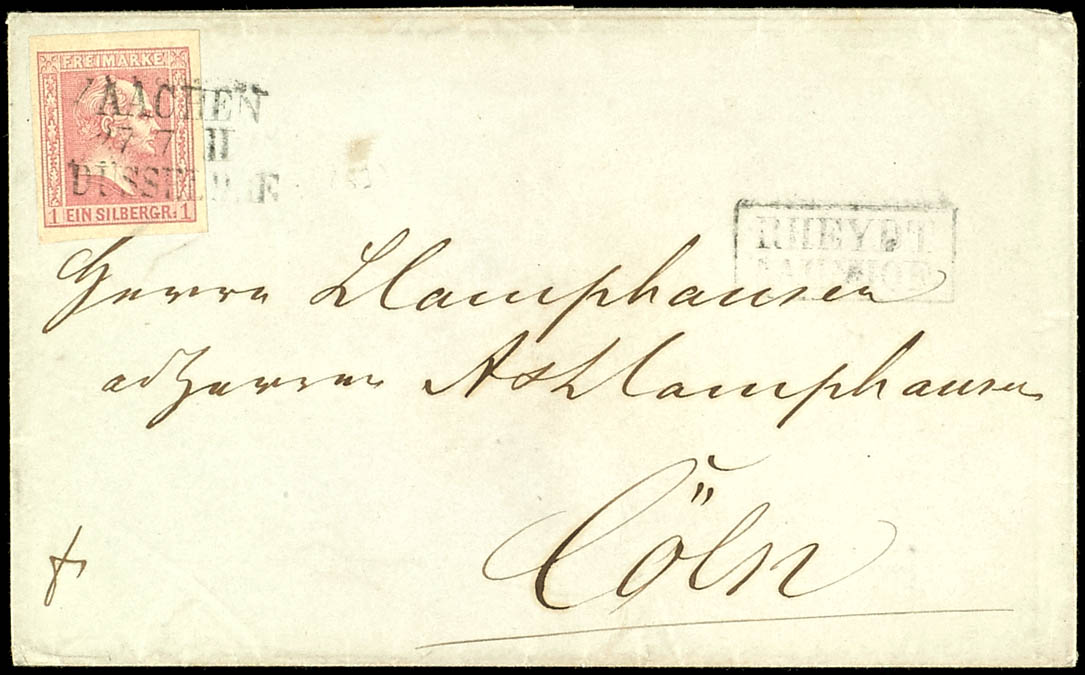 FREIMARKE
1 EIN SILBERGR. 1
AACHEN
27 7 II
DÜSSELDORF
RHEYDT
BAHNHOF
Herrn L Camphausen
ad Herren A & L Camphausen
Cöln